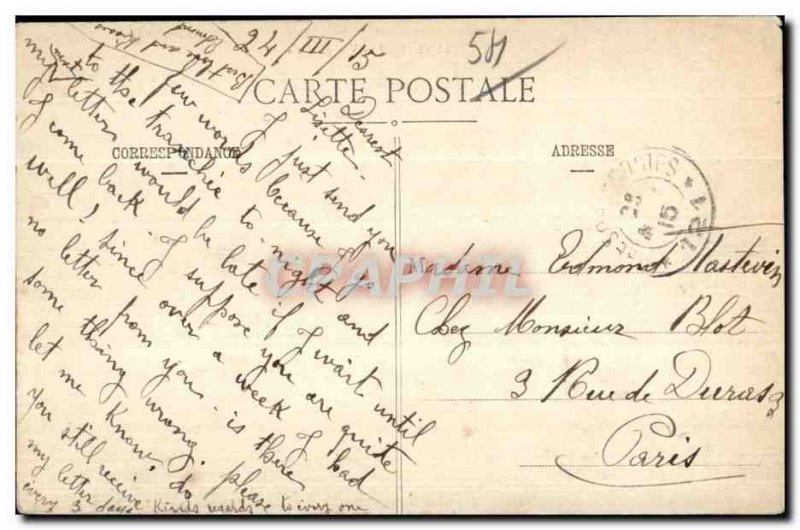 24/III/15
58
CARTE POSTALE
CORRESPONDANCE
ADRESSE
Dearest
Lisette.
I just send you
few words because I go
to the tranchée to-night and
my letters would be late if I wait until
next
I come back. I suppose you are quite
well! Since over a week I had
no letter from you. is there
some thing wrong. please
let me know. do
you still receive
my letter
every 3 days Kinds regards to every one
Best love and
Edmond
Madame Edmond Mastevin
Chez Monsieur Blot
3 Rue de Duras 3
Paris
POSTES
28
15
121
CAPHIL